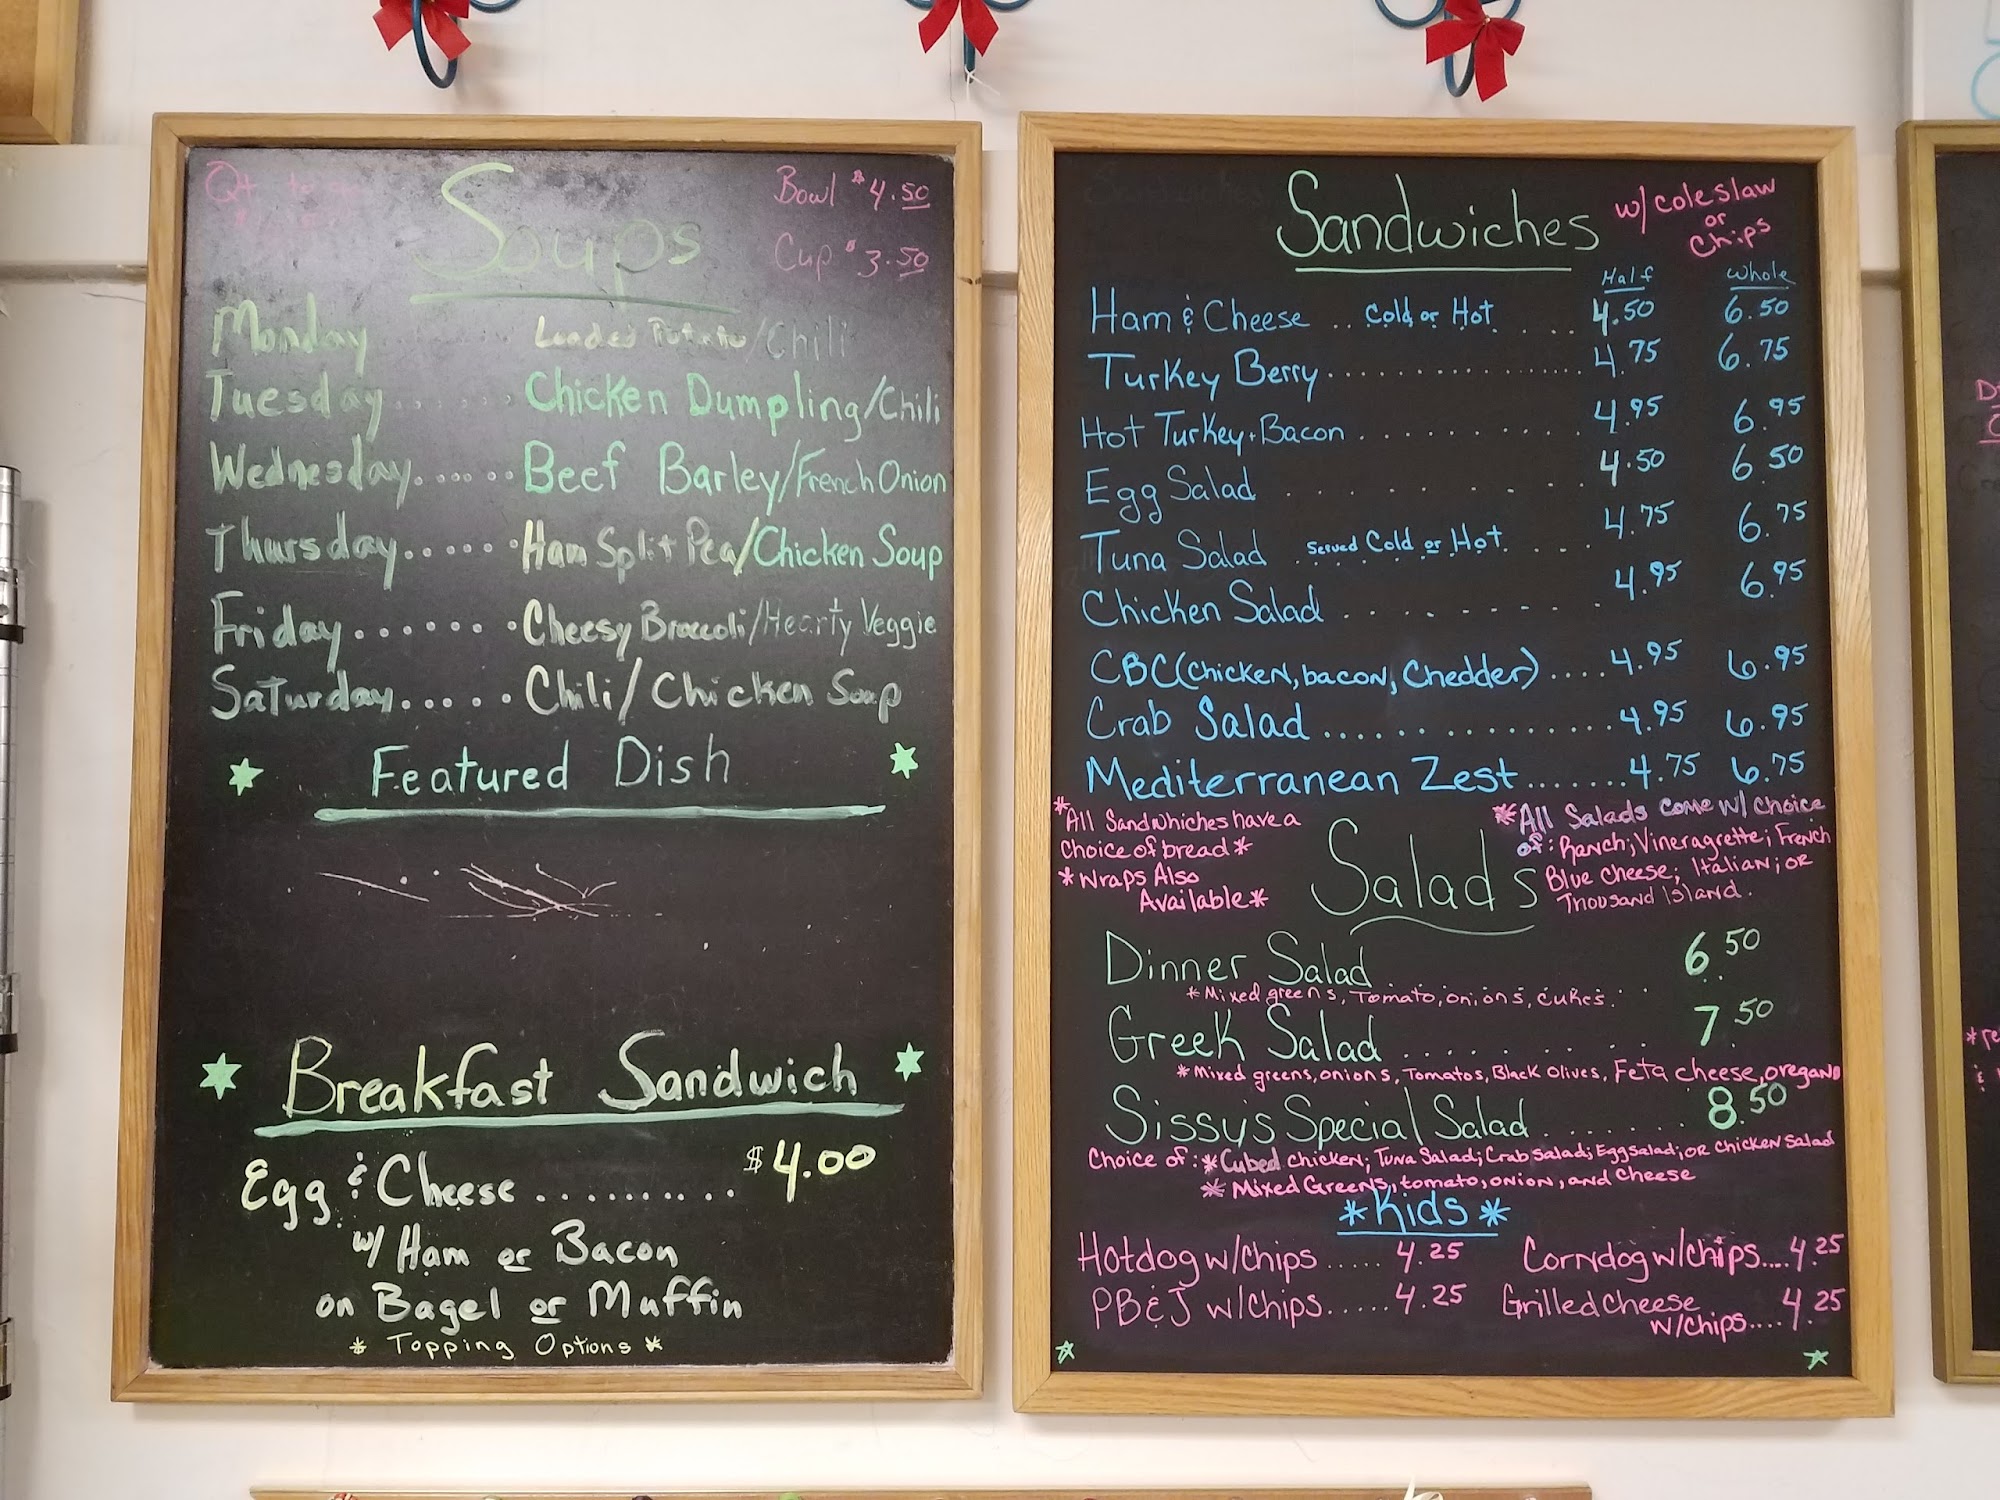 Qt to go
Soups
Bowl $4.50
Cup $3.50
Monday Loaded Potato/Chili
Tuesday....... Chicken Dumpling/Chili
Wednesday...... Beef Barley/French Onion
Thursday...... Ham Split Pea/Chicken Soup
Friday....... Cheesy Broccoli/Hearty Veggie
Saturday..... Chili/Chicken Soup
Featured Dish
Breakfast Sandwich
Egg & Cheese.......... $4.00
w/ Ham or Bacon
on Bagel or Muffin
* Topping Options *
Sandwiches w/ coleslaw
or
Chips
Half Whole
Ham & Cheese .. Cold or Hot .... 4.50 6.50
Turkey Berry................ 4.75 6.75
Hot Turkey + Bacon.......... 4.95 6.95
Egg Salad ......... 4.50 6.50
Tuna Salad Served Cold or Hot .... 4.75 6.75
Chicken Salad ......... 4.95 6.95
CBC (chicken, bacon, Chedder).... 4.95 6.95
Crab Salad.............. 4.95 6.95
Mediterranean Zest....... 4.75 6.75
*All Sandwhiches have a
choice of bread*
*Wraps Also
Available*
Salads
*All Salads come w/ choice
of: Ranch; Vineragrette; French
Blue cheese; Italian; or
Thousand Island.
Dinner Salad.......... 6.50
*Mixed greens, Tomato, onions, cukes.
Greek Salad .......... 7.50
*Mixed greens, onions, Tomatos, Black olives, Feta cheese, oregano
Sissy's Special Salad ...... 8.50
Choice of: *Cubed chicken; Tuna Salad; Crab salad; Egg salad; or chicken salad
* Mixed Greens, tomato, onion, and cheese
*Kids*
Hotdog w/chips ..... 4.25 Corndog w/chips.... 4.25
PB&J w/chips...... 4.25 Grilled cheese
w/chips.... 4.25